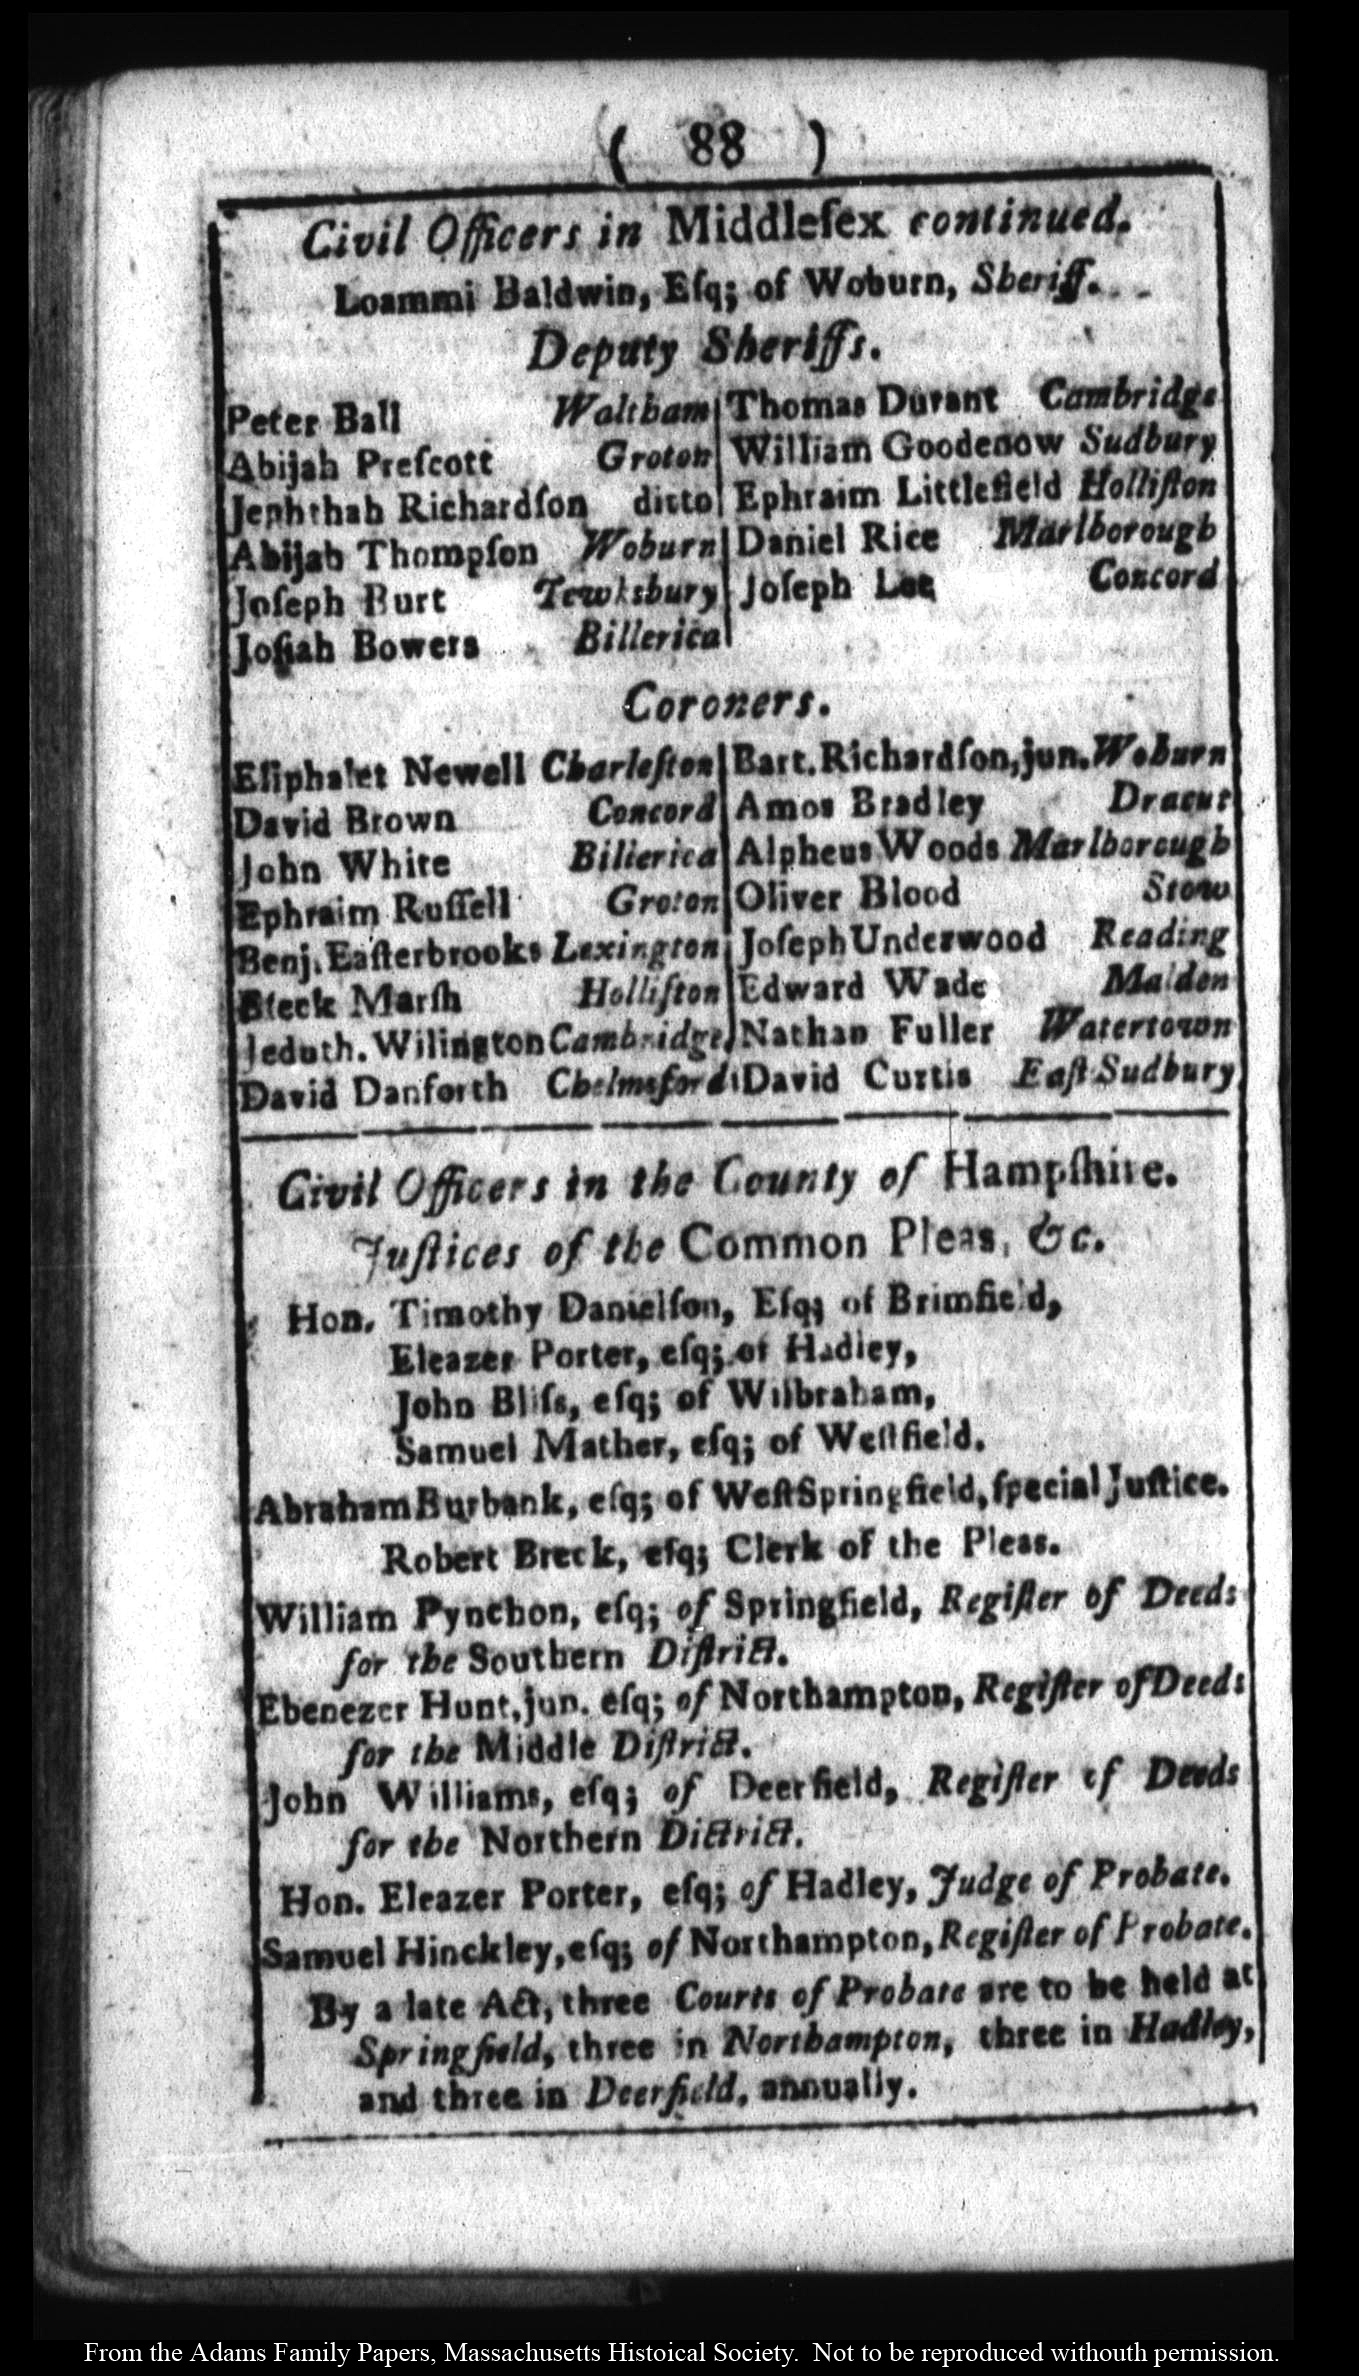 ( 88 )
Civil Officers in Middleſex continued.
Loammi Baldwin, Eſq; of Woburn, Sheriff.
Deputy Sheriffs.
Peter Ball Waltham Thomas Durant Cambridge
Abijah Preſcott Groton William Goodenow Sudbury
Jephthah Richardſon ditto Ephraim Littlefield Holliſton
Abijah Thompſon Woburn Daniel Rice Marlborough
Joſeph Burt Tewksbury Joſeph Lee Concord
Joſiah Bowers Billerica
Coroners.
Eliphalet Newell Charleſton Bart. Richardſon, jun. Woburn
David Brown Concord Amos Bradley Dracut
John White Billerica Alpheus Woods Marlborough
Ephraim Ruſſell Groton Oliver Blood Stow
Benj. Eaſterbrooks Lexington Joſeph Underwood Reading
Marſh Holliſton Edward Wade Malden
Jeduth. Wilington Cambridge Nathan Fuller Watertown
David Danforth Chelmsford David Curtis Eaſt Sudbury
Civil Officers in the County of Hampſhire.
Juſtices of the Common Pleas, &c.
Hon. Timothy Danielſon, Eſq; of Brimfield,
Eleazer Porter, eſq; of Hadley,
John Bliſs, eſq; of Wilbraham,
Samuel Mather, eſq; of Weſtfield.
Abraham Burbank, eſq; of Weſt Springfield, ſpecial Juſtice.
Robert Breck, eſq; Clerk of the Pleas.
William Pynchon, eſq; of Springfield, Regiſter of Deeds
for the Southern Diſtrict.
Ebenezer Hunt, jun. eſq; of Northampton, Regiſter of Deeds
for the Middle Diſtrict.
John Williams, eſq; of Deerfield, Regiſter of Deeds
for the Northern Dictrict.
Hon. Eleazer Porter, eſq; of Hadley, Judge of Probate.
Samuel Hinckley, eſq; of Northampton, Regiſter of Probate.
By a late Act, three Courts of Probate are to be held at
Springfield, three in Northampton, three in Hadley,
and three in Deerfield, annually.
From the Adams Family Papers, Massachusetts Histoical Society. Not to be reproduced withouth permission.